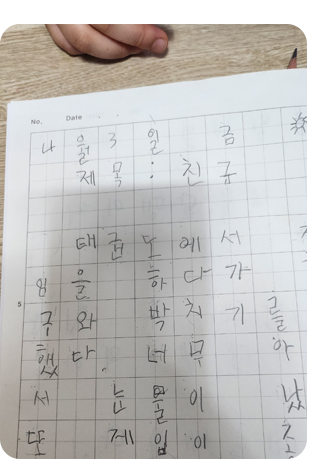 No. Date
나 월 3 일 금
제목 : 친구
태권도에서
을 하다가
구와 박치기를
했다. 너무 아
서 눈물이 났
또 제임이